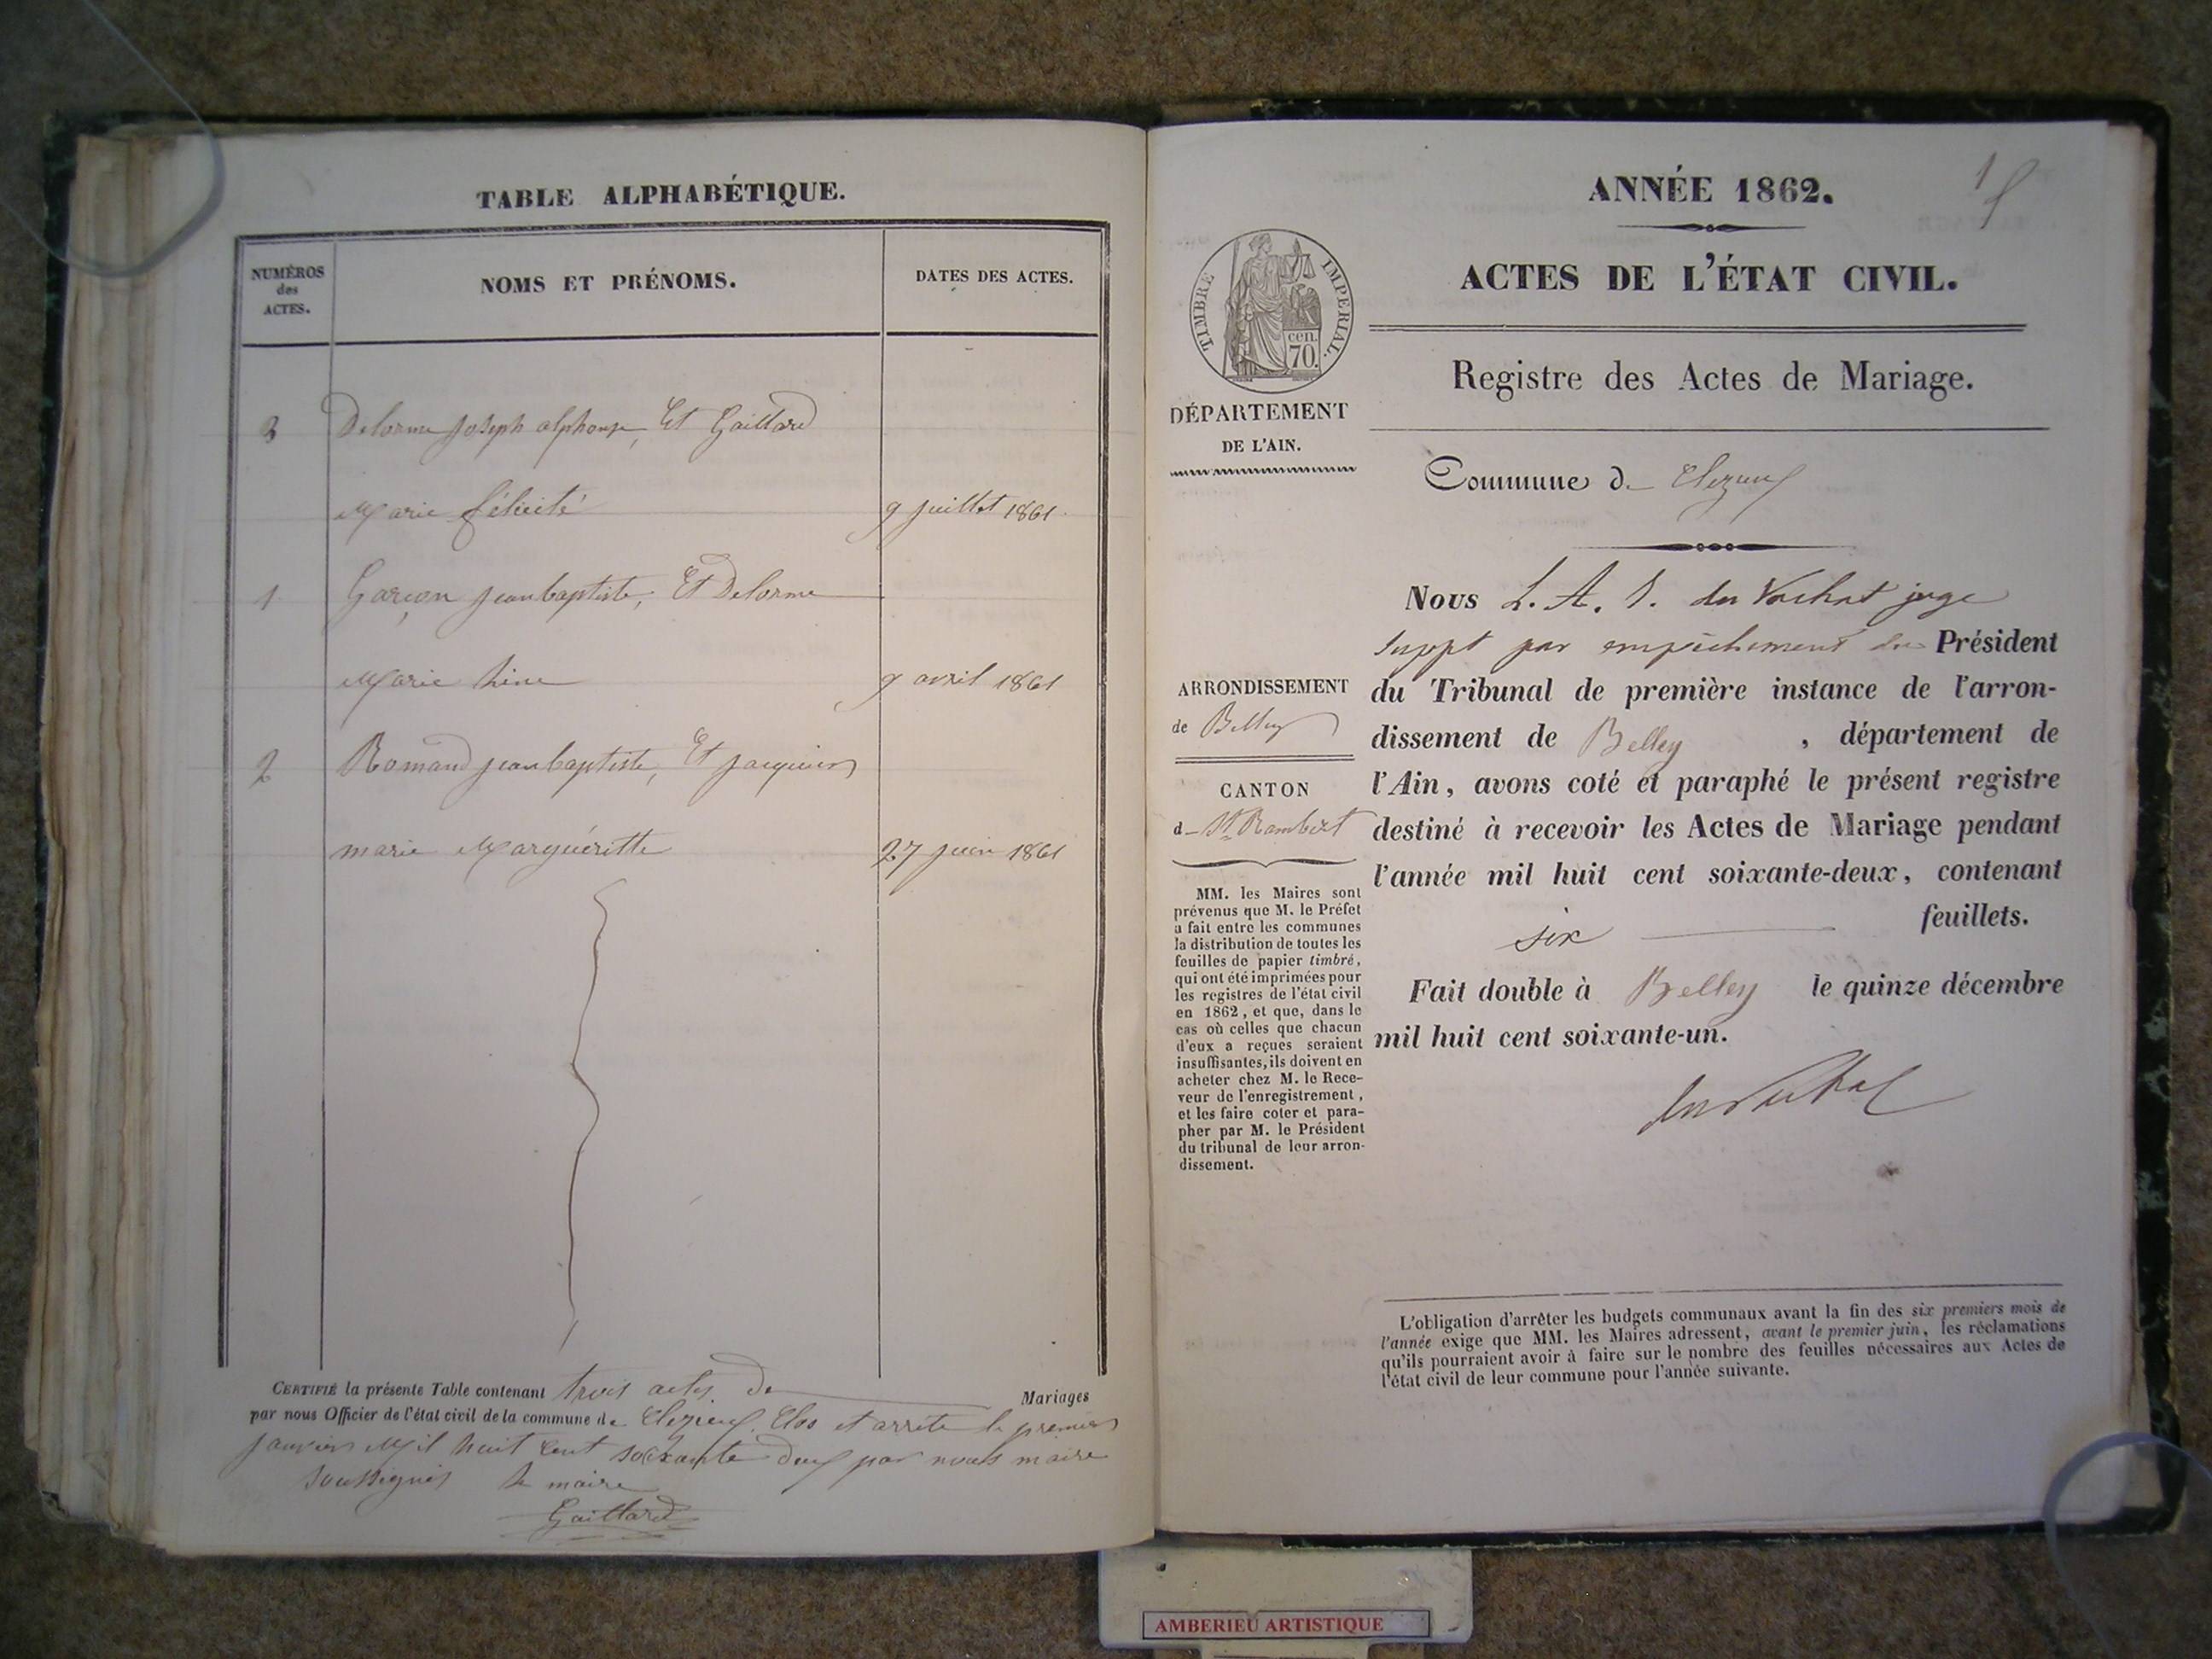 TABLE ALPHABÉTIQUE.
NUMÉROS
des
ACTES.
NOMS ET PRÉNOMS.
DATES DES ACTES.
3 Delorme joseph alphonse, Et Gaillard
Marie félicité 9 juillet 1861
1 Garçon jean baptiste, Et Delorme
Marie 9 avril 1861
2 Romand jean baptiste, Et jacquier
marie Marguéritte 27 juin 1861
CERTIFIÉ la présente Table contenant trois actes de Mariages
par nous Officier de l'état civil de la commune de Cleyzieu, Clos et arrêté le premier
janvier Mil huit cent soixante deux par nous maire
soussigné le maire
Gaillard
1
ANNÉE 1862.
ACTES DE L'ÉTAT CIVIL.
TIMBRE IMPÉRIAL.
cen.
70.
Registre des Actes de Mariage.
DÉPARTEMENT
DE L'AIN.
Commune de Cleyzieu
Nous L. A. du Vachat juge
suppt par empêchement du Président
du Tribunal de première instance de l'arron-
dissement de Belley, département de
l'Ain, avons coté et paraphé le présent registre
destiné à recevoir les Actes de Mariage pendant
l'année mil huit cent soixante-deux, contenant
six feuillets.
Fait double à Belley le quinze décembre
mil huit cent soixante-un.
du Vachat
ARRONDISSEMENT
de Belley
CANTON
d St Rambert
MM. les Maires sont
prévenus que M. le Préfet
a fait entre les communes
la distribution de toutes les
feuilles de papier timbré,
qui ont été imprimées pour
les registres de l'état civil
en 1862, et que, dans le
cas où celles que chacun
d'eux a reçues seraient
insuffisantes, ils doivent en
acheter chez M. le Rece-
veur de l'enregistrement,
et les faire coter et para-
pher par M. le Président
du tribunal de leur arron-
dissement.
L'obligation d'arrêter les budgets communaux avant la fin des six premiers mois de
l'année exige que MM. les Maires adressent, avant le premier juin, les réclamations
qu'ils pourraient avoir à faire sur le nombre des feuilles nécessaires aux Actes de
l'état civil de leur commune pour l'année suivante.
AMBERIEU ARTISTIQUE